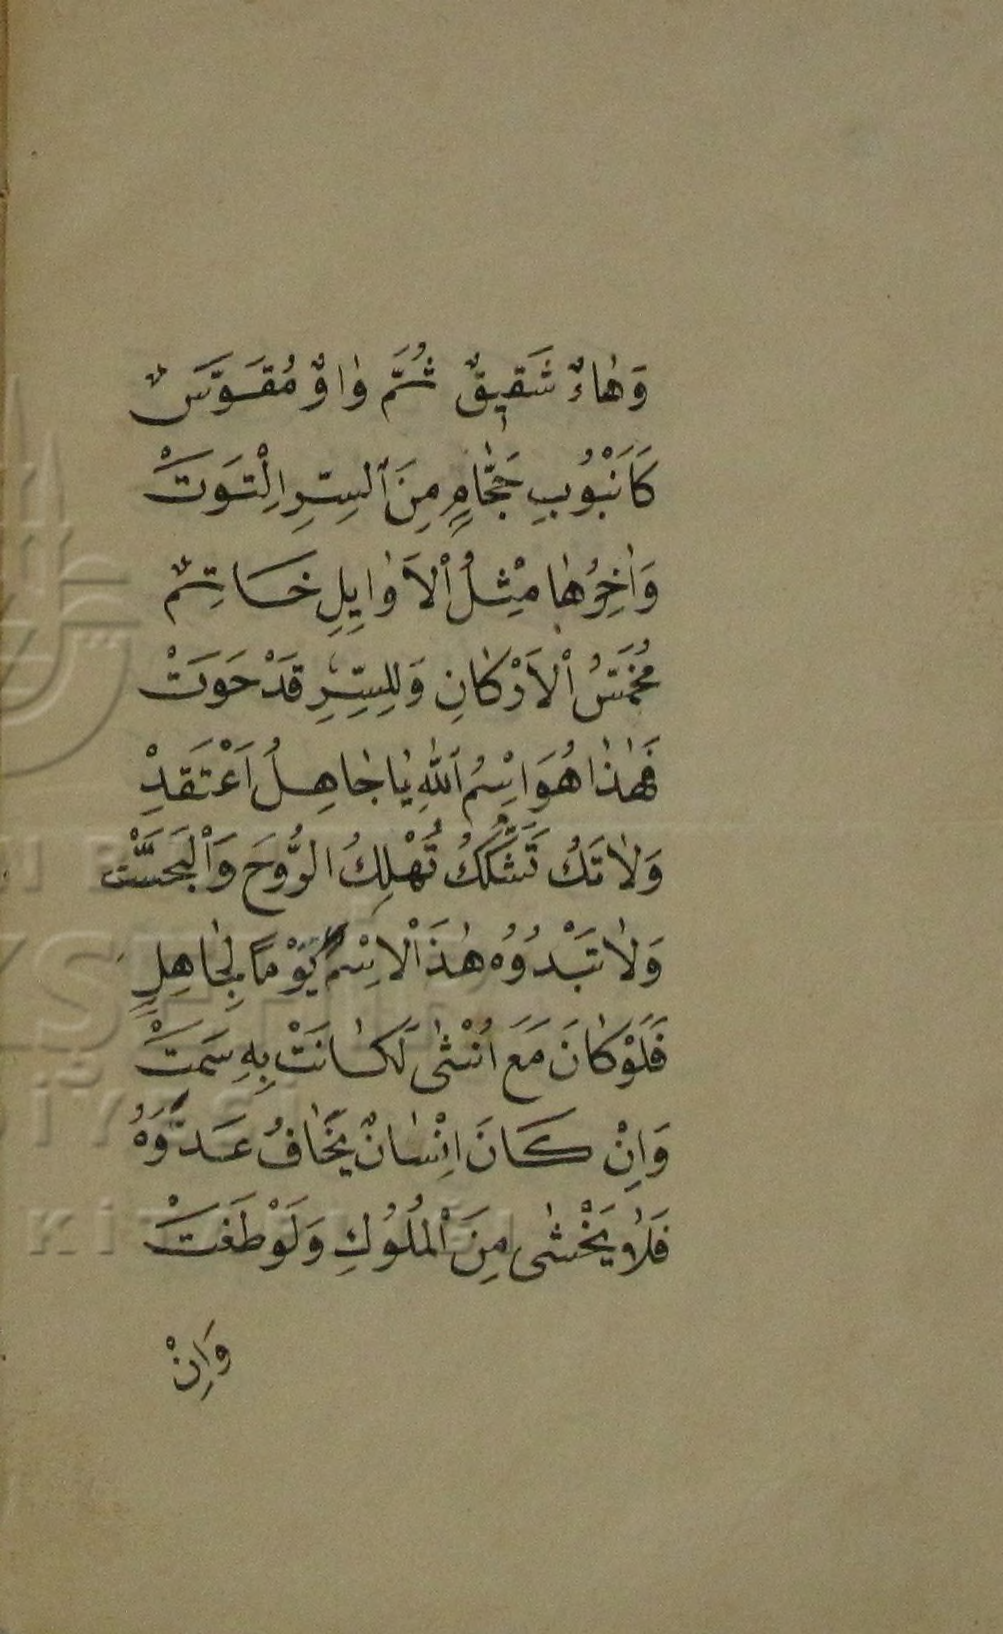 وَهٰاءٌ شَقٖيقٌ ثُمَّ وٰاوٌ مُقَوَّسٌ
كَاَنْبُوبِ حَجّٰامٍ مِنَ السِّرِ الْتَوَتْ
وَاٰخِرُهٰا مِثْلُ الْاَوٰايِلِ خَاتِمٌ
مُخَمَّسُ الْاَرْكٰانِ وَلِلسِّرِّ قَدْ حَوَتْ
فَهٰذٰا هُوَ اسْمُ اللّٰهِ يٰا جٰاهِلُ اعْتَقِدْ
وَلٰا تَكُ تَشَّكُّكُ تُهْلِكُ الرُّوحَ وَالْ
وَلٰا تَبْدُوُهُ هٰذَ الْاِسْمُ يَوْمًا لِجٰاهِلٍ
فَلَوْ كٰانَ مَعَ اُنْثٰى لَكٰانَتْ بِهٖ سَمَتْ
وَاِنْ كَانَ اِنْسٰانٌ يَخٰافُ عَدُوَّهُ
فَلٰا يَخْشٰى مِنَ الْمُلُوكِ وَلَوْ طَغَتْ
وَاِنْ